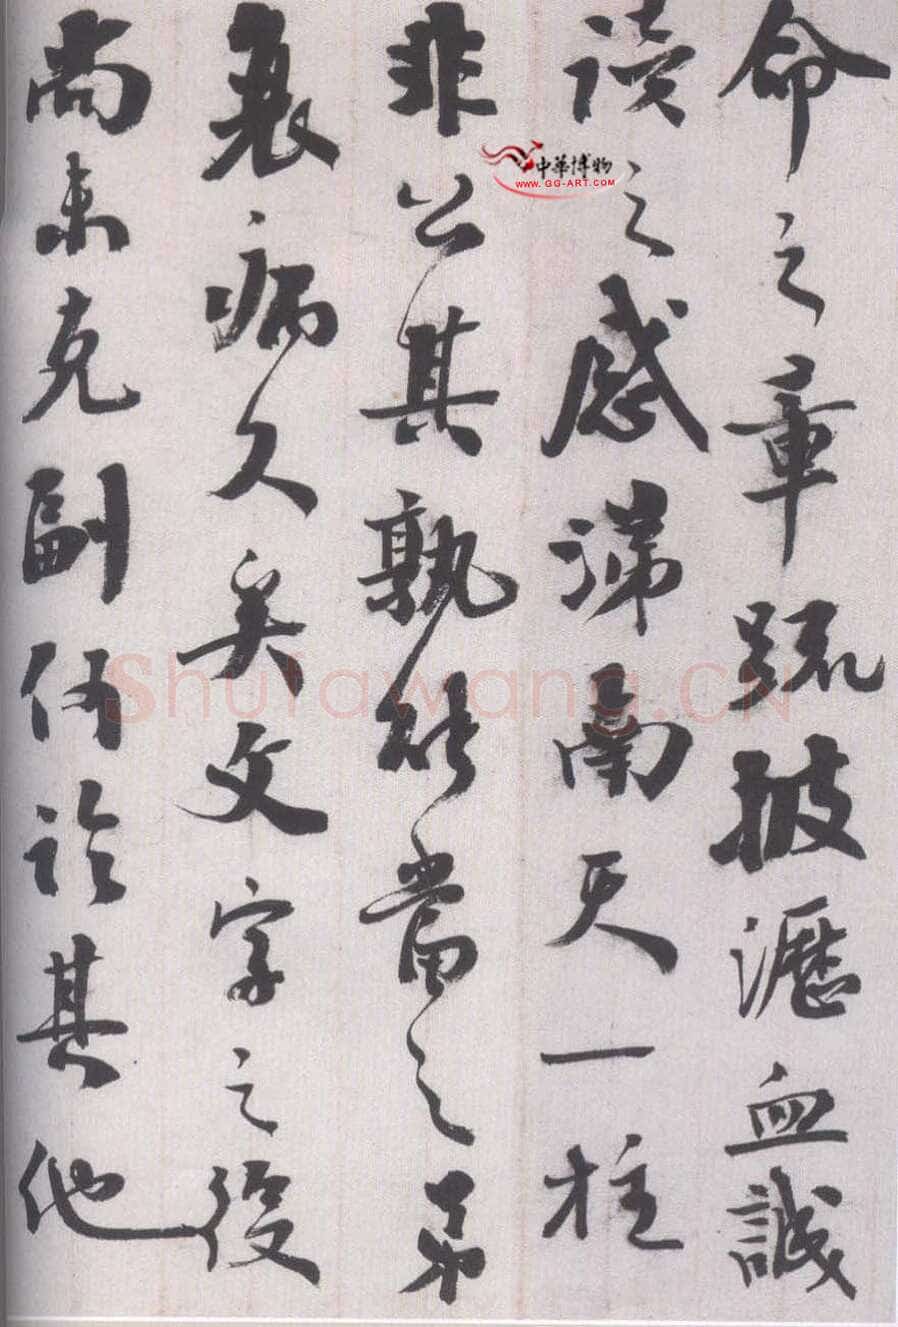 命之章疏披瀝血誠
讀之感涕南天一柱
非公其孰能當之弟
衰病久矣文字之役
尚未克副何論其他
中華博物
WWW.GG-ART.COM
Shufawang.CN